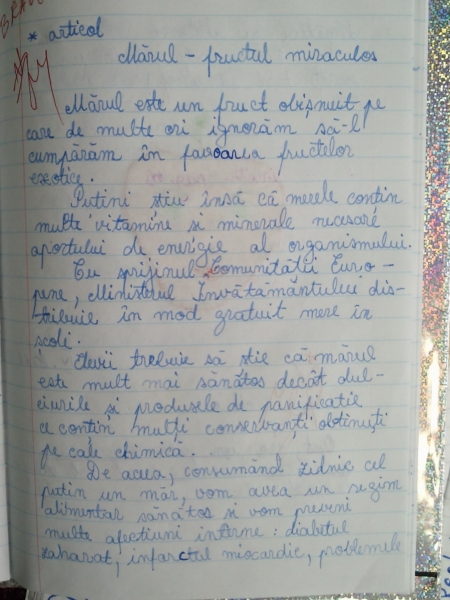 BRAVO
* articol
Mărul - fructul miraculos
Mărul este un fruct obișnuit pe
care de multe ori ignorăm să-l
cumpărăm în favoarea fructelor
exotice.
Puțini știu însă că merele conțin
multe vitamine și minerale necesare
aportului de energie al organismului.
Cu sprijinul Comunității Euro-
pene, Ministerul Învățământului dis-
tribuie în mod gratuit mere în
școli.
Elevii trebuie să știe că mărul
este mult mai sănătos decât dul-
ciurile și produsele de panificație
ce conțin mulți conservanți obținuți
pe cale chimică.
De aceea, consumând zidnic cel
puțin un măr, vom avea un regim
alimentar sănătos și vom preveni
multe afecțiuni interne: diabetul
zaharat, infarctul miocardic, problemele